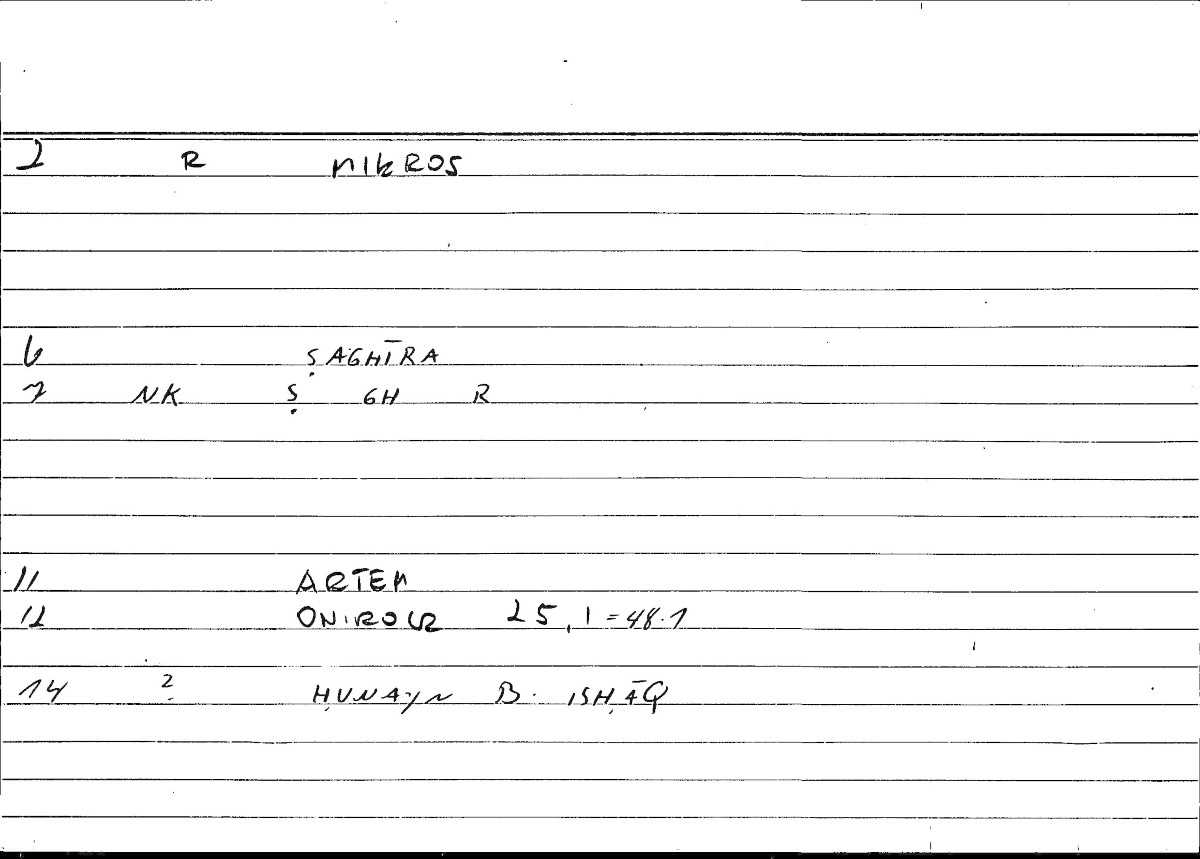 2 R MIKROS
6 ṢAGHĪRA
7 NK Ṣ GH R
11 ARTEM
12 ONIROCR 25,1=48.7
14 2 ḤUNAYN B. ISḤĀQ